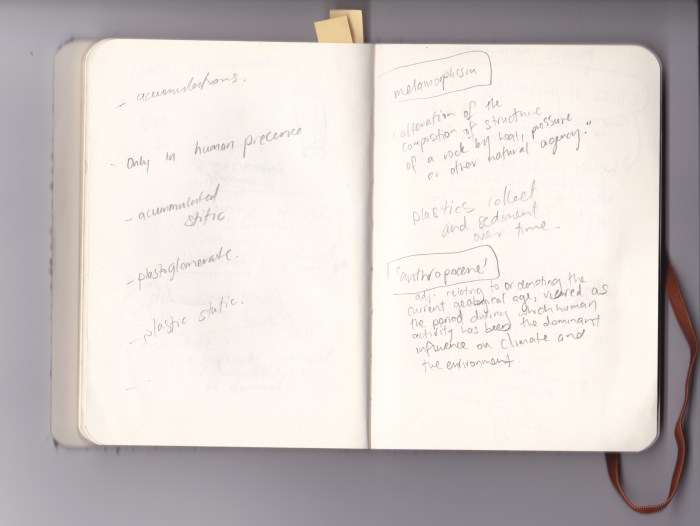 - acummulations.
- only in human precence
- acummulated
static
- plastiglomerate.
- plastic static.
-
metamorphism
"alteration of the
composition of structure
of a rock by heat, pressure
or other natural agency."
plastics collect
and sediment
over time.
'anthropocene'
adj. relating to or denoting the
current geological age, viewed as
the period during which human
activity has been the dominant
influence on climate and
the environment